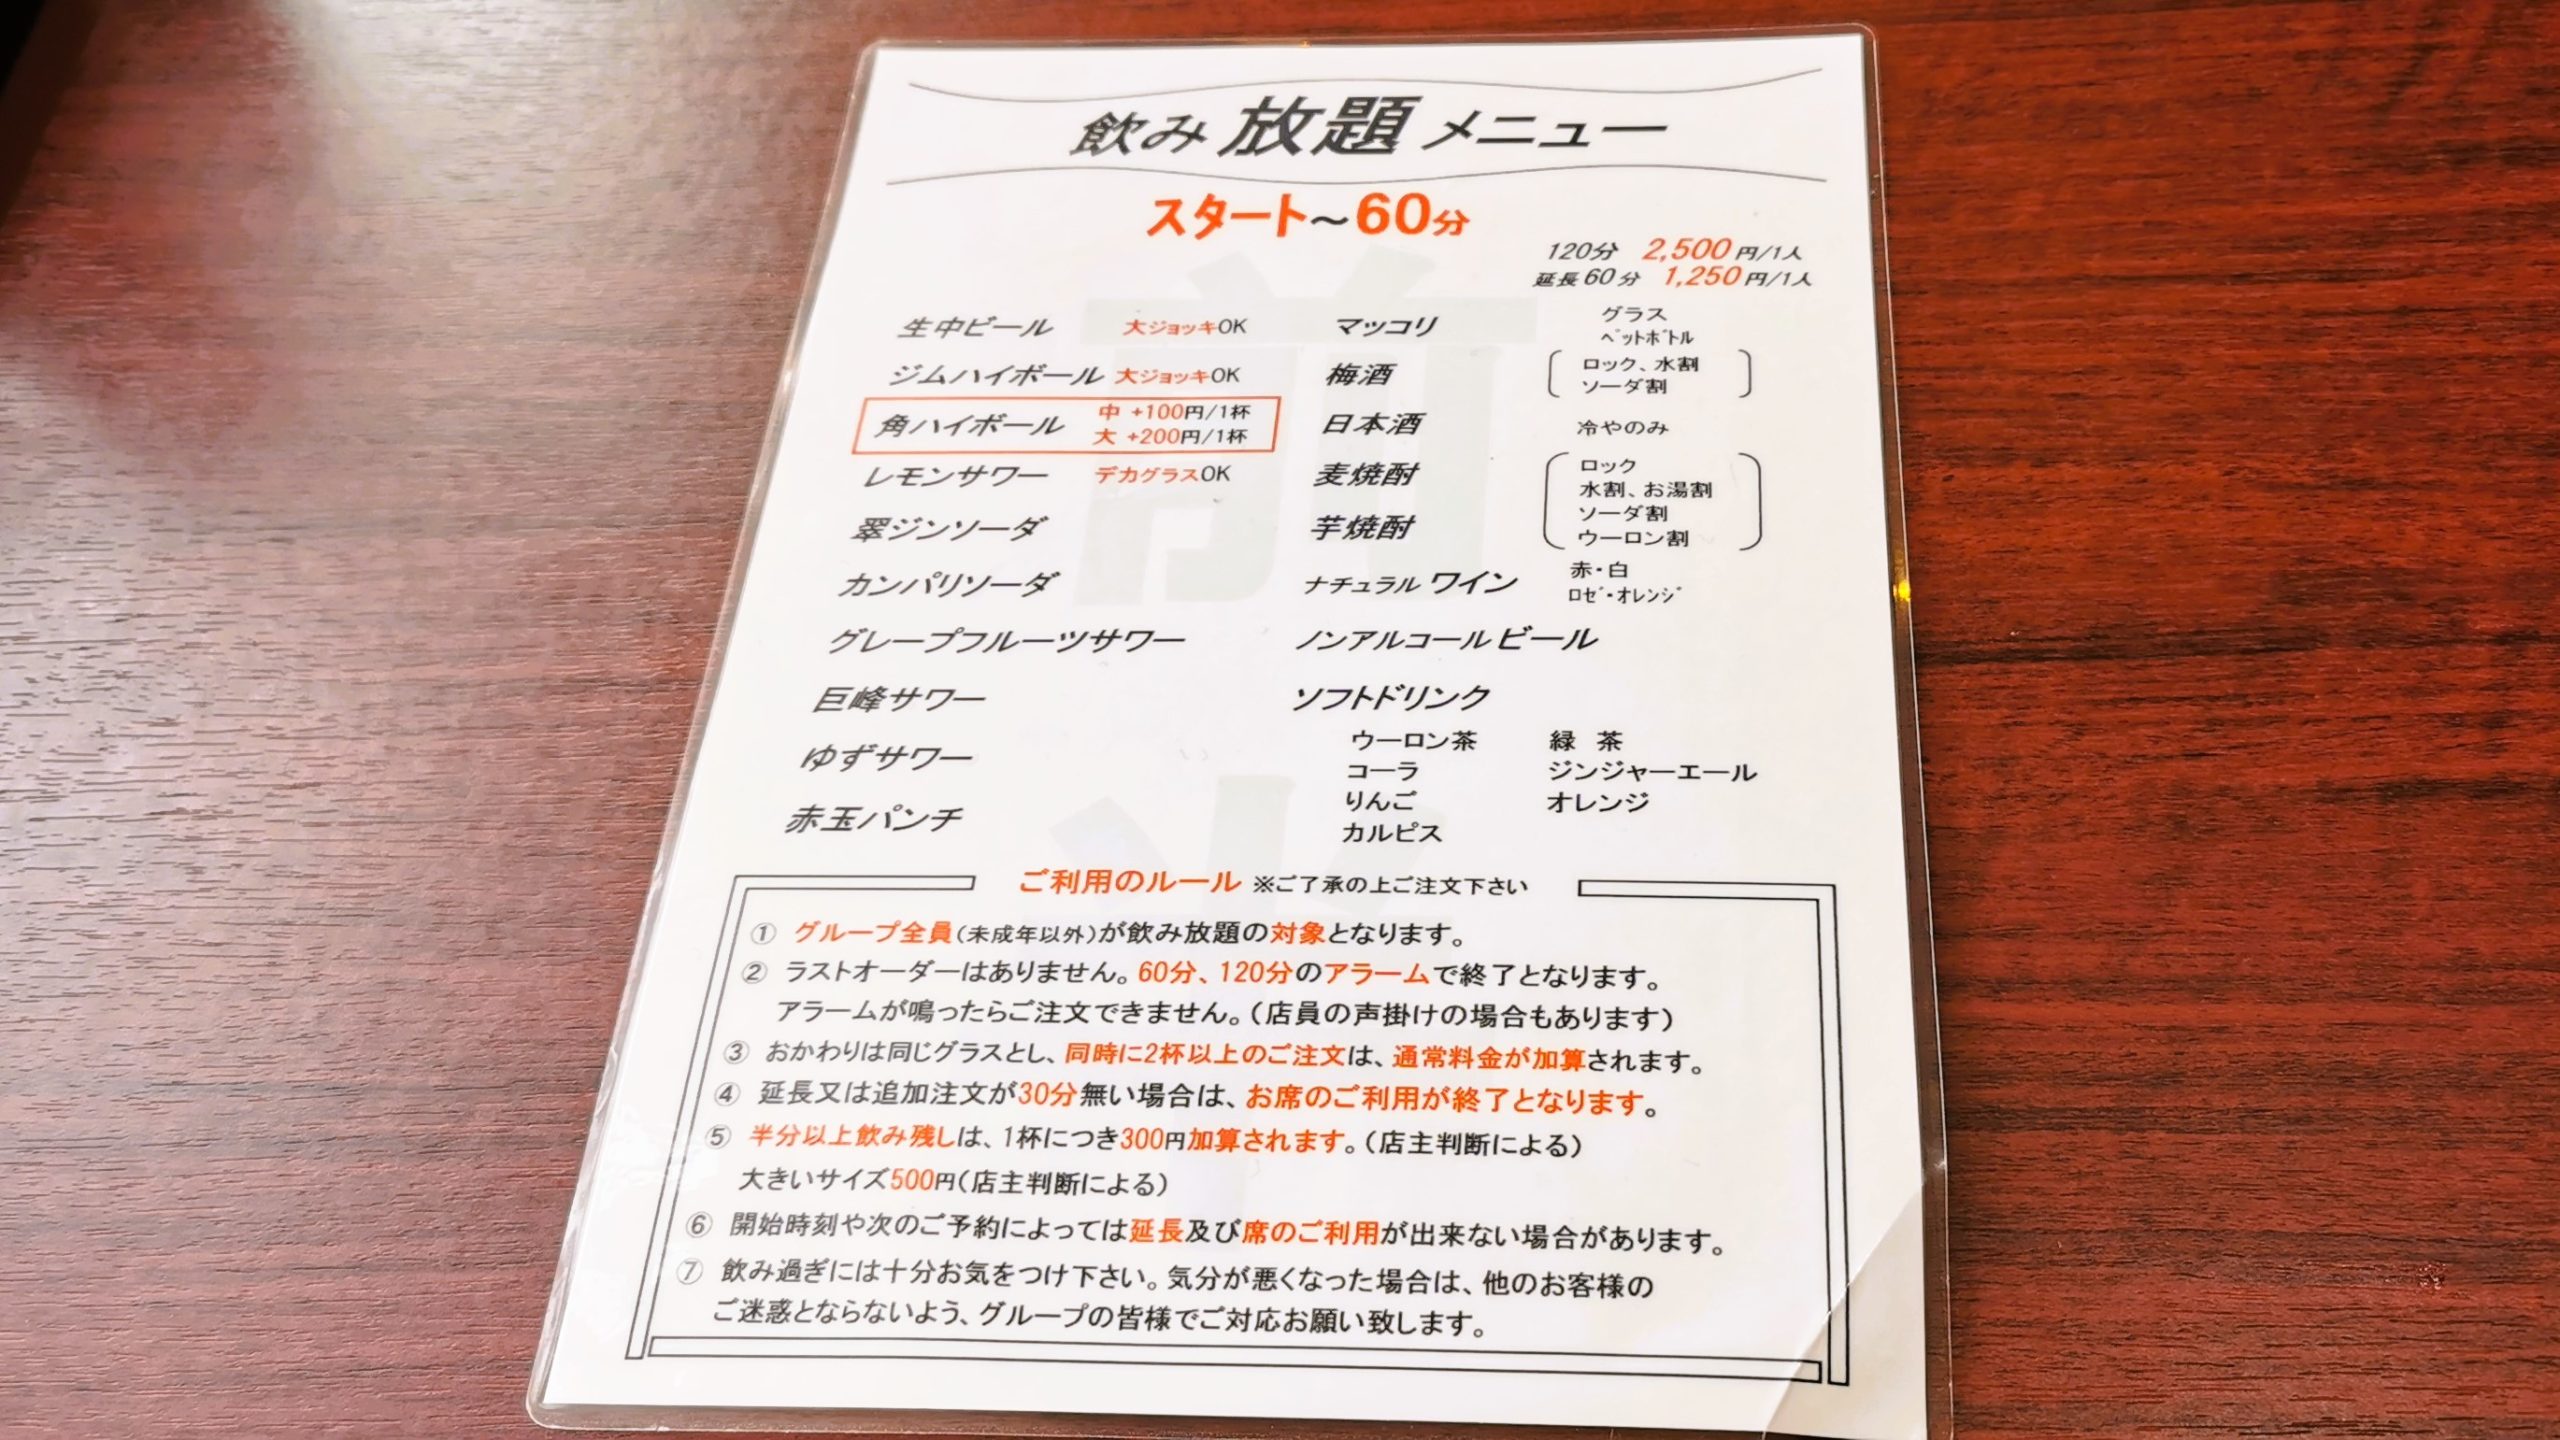 飲み放題メニュー
スタート～60分
120分 2,500円/1人
延長60分 1,250円/1人
生中ビール 大ジョッキOK
ジムハイボール 大ジョッキOK
角ハイボール 中 +100円/1杯
大 +200円/1杯
レモンサワー デカグラスOK
翠ジンソーダ
カンパリソーダ
グレープフルーツサワー
巨峰サワー
ゆずサワー
赤玉パンチ
マッコリ グラス
ペットボトル
梅酒 ロック、水割
ソーダ割
日本酒 冷やのみ
麦焼酎
芋焼酎
ロック
水割、お湯割
ソーダ割
ウーロン割
ナチュラルワイン 赤・白
ロゼ・オレンジ
ノンアルコールビール
ソフトドリンク
ウーロン茶 緑 茶
コーラ ジンジャーエール
りんご オレンジ
カルピス
ご利用のルール ※ご了承の上ご注文下さい
① グループ全員(未成年以外)が飲み放題の対象となります。
② ラストオーダーはありません。60分、120分のアラームで終了となります。
アラームが鳴ったらご注文できません。(店員の声掛けの場合もあります)
③ おかわりは同じグラスとし、同時に2杯以上のご注文は、通常料金が加算されます。
④ 延長又は追加注文が30分無い場合は、お席のご利用が終了となります。
⑤ 半分以上飲み残しは、1杯につき300円加算されます。(店主判断による)
大きいサイズ500円(店主判断による)
⑥ 開始時刻や次のご予約によっては延長及び席のご利用が出来ない場合があります。
⑦ 飲み過ぎには十分お気をつけ下さい。気分が悪くなった場合は、他のお客様の
ご迷惑とならないよう、グループの皆様でご対応お願い致します。